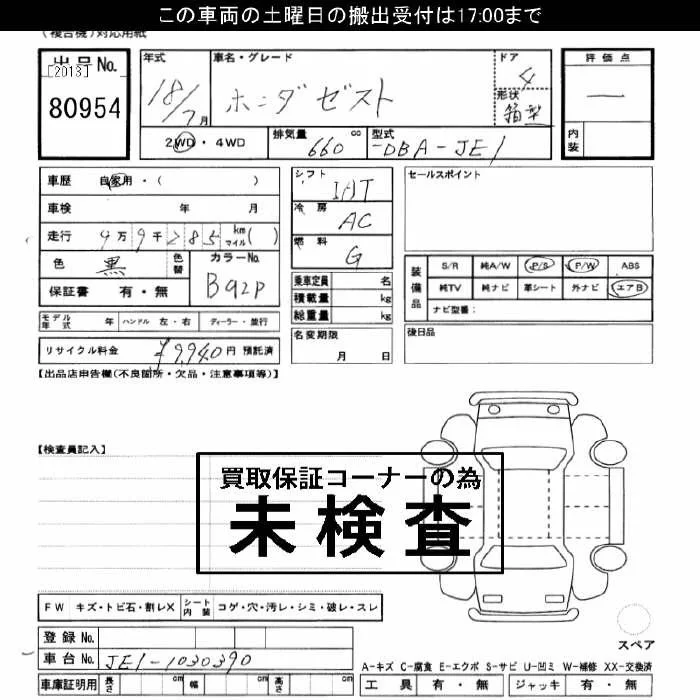 この車両の土曜日の搬出受付は17:00まで
(複合機)対応用紙
出品No.
[2013]
80954
年式
18/7月
車名・グレード
ホンダゼスト
ドア
4
形状
箱型
評価点
—
内装
2WD・4WD
排気量
660 cc
型式
DBA-JE1
車歴 自家用・( )
車検 年 月
走行 9万9千285 km マイル( )
色 黒 色替
カラーNo.
B92P
保証書 有・無
シフト
IAT
冷房
AC
燃料
G
乗車定員 名
積載量 kg
総重量 kg
セールスポイント
装備品
S/R 純A/W P/S P/W ABS
純TV 純ナビ 革シート 外ナビ エアB
ナビ型番:
モデル年式 年 ハンドル 左・右 ディーラー・並行
名変期限
月 日
後日品
リサイクル料金 ¥9,940円 預託済
【出品店申告欄(不良箇所・欠品・注意事項等)】
【検査員記入】
買取保証コーナーの為
未検査
FW キズ・トビ石・割レX シート内装 コゲ・穴・汚レ・シミ・破レ・スレ
登録No.
車台No. JE1-1030390
車庫証明用 長さ cm 幅 cm 高さ cm
スペア
A-キズ C-腐食 E-エクボ S-サビ U-凹ミ W-補修 XX-交換済
工具 有・無 ジャッキ 有・無